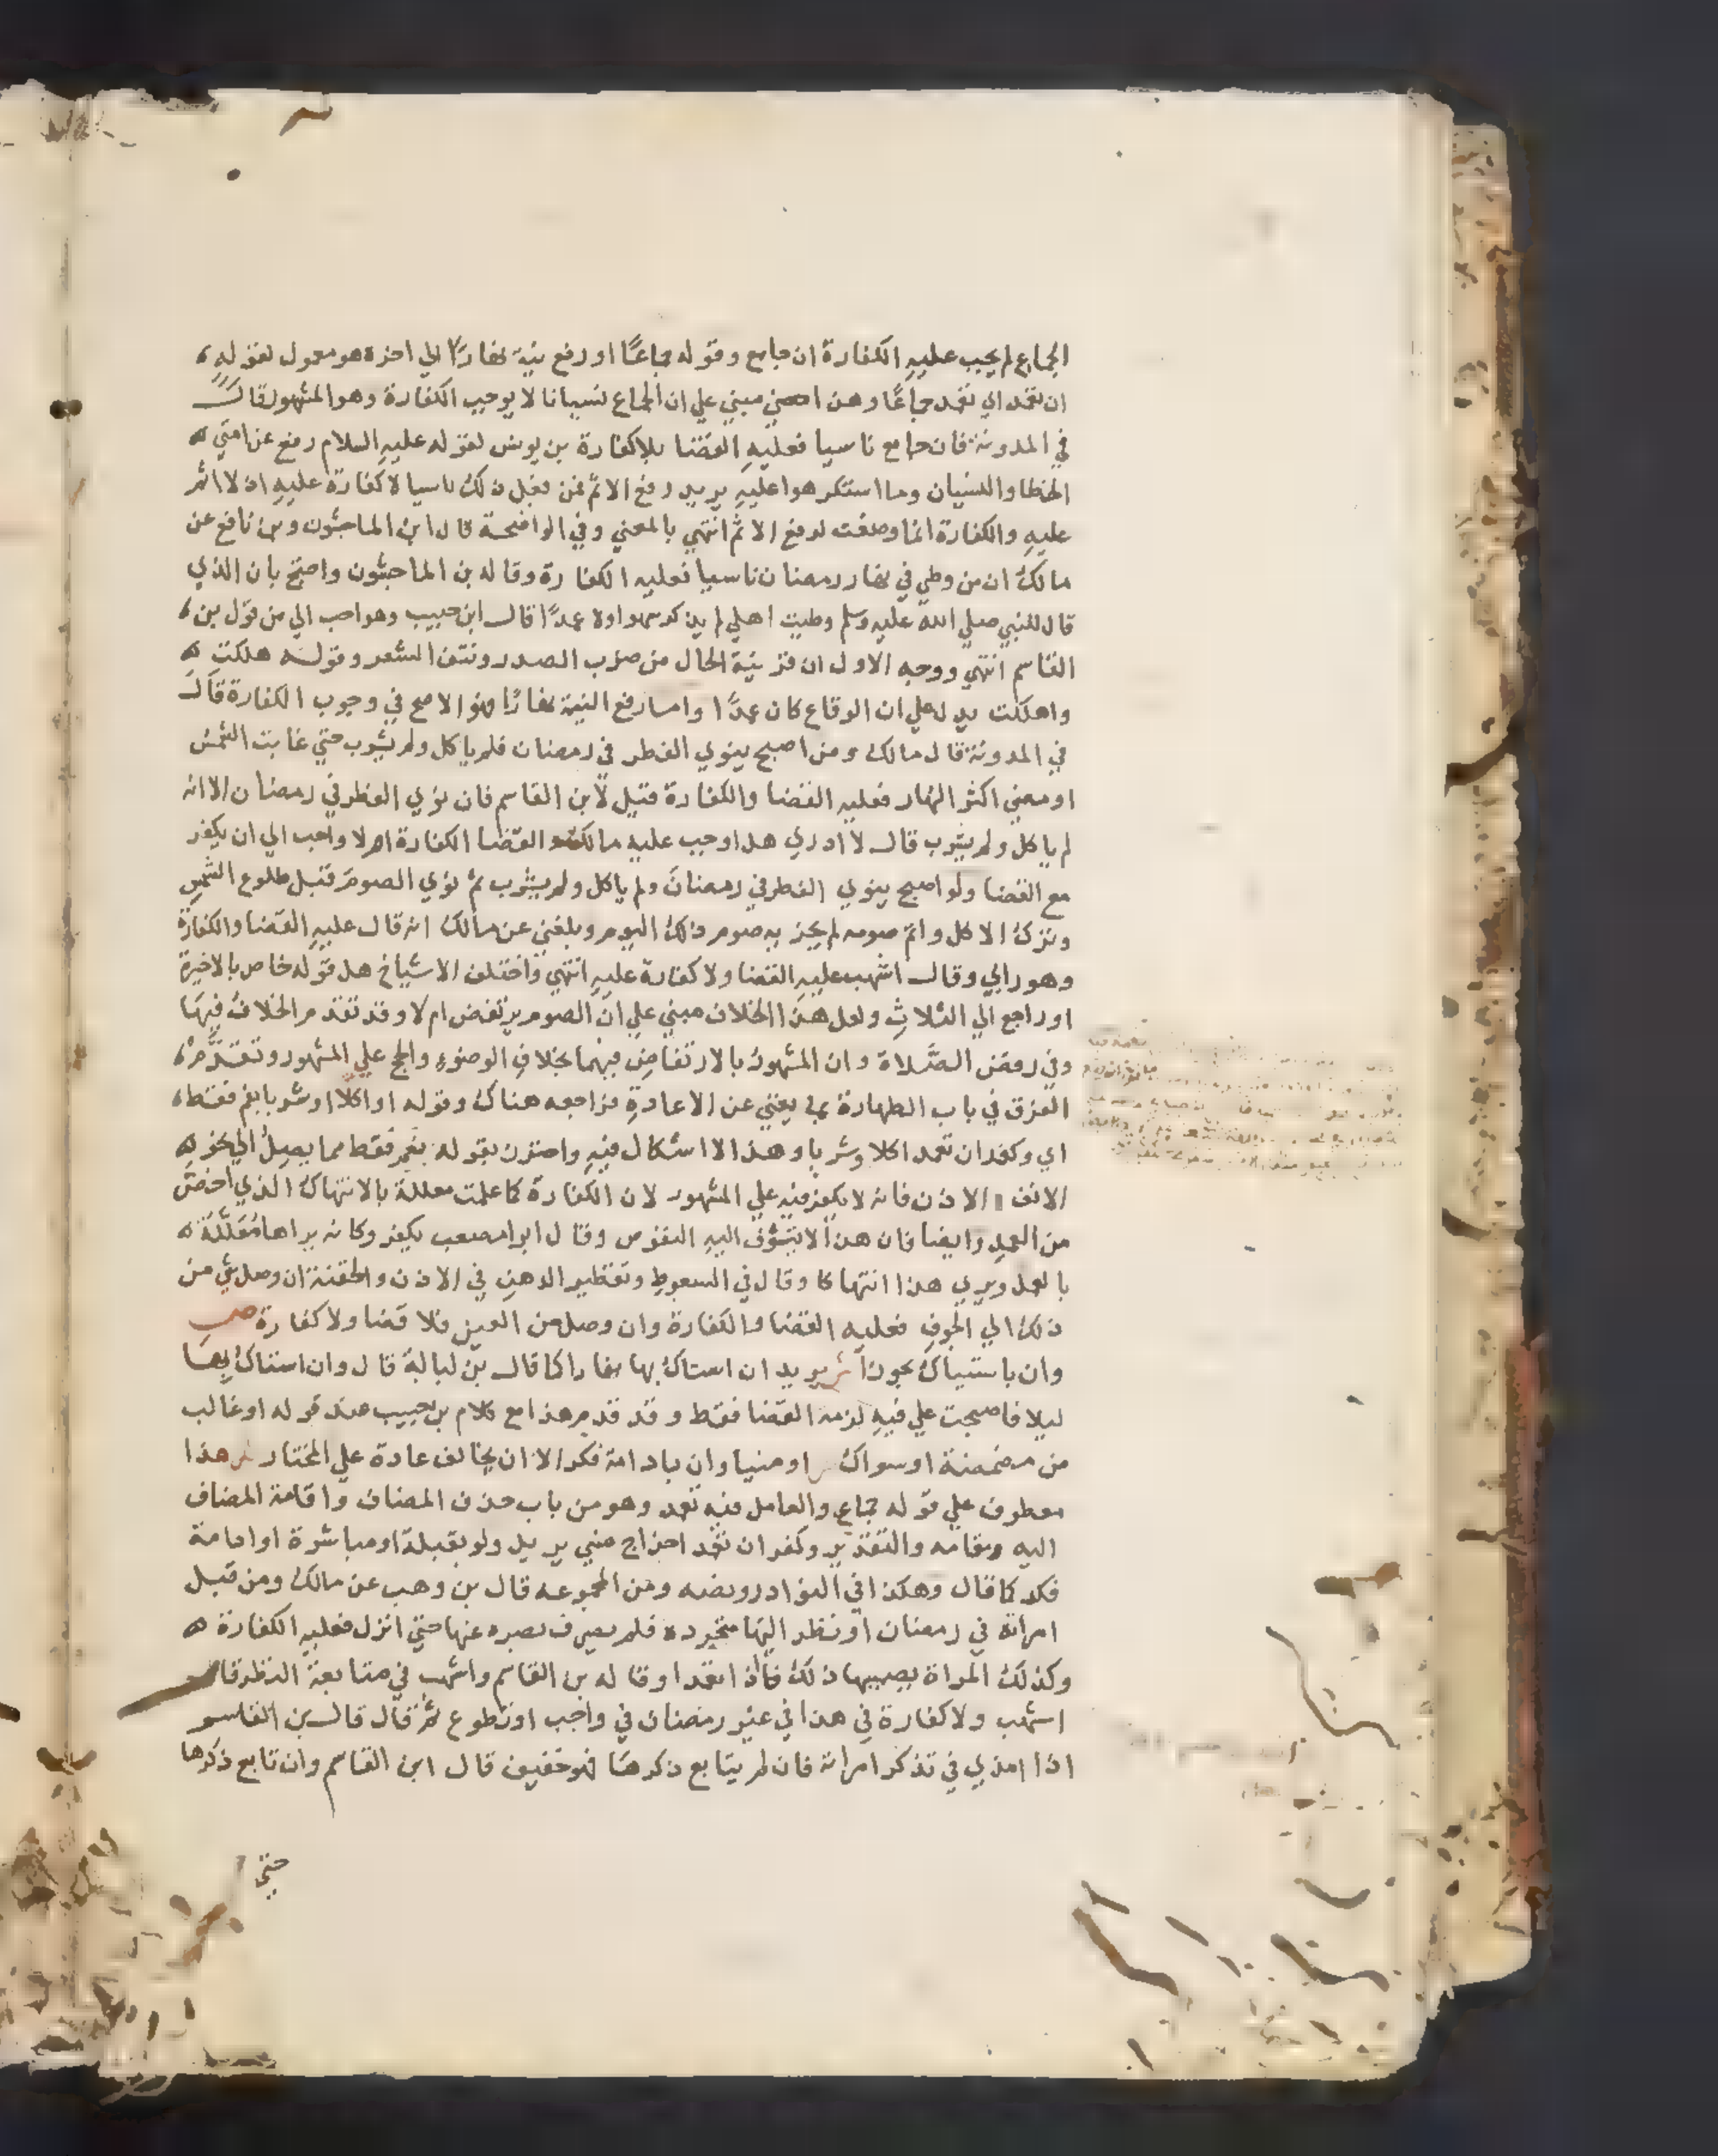 الجماع لم يجب عليه الكفارة ان جامع وقوله جماعًا او رفع نية نهارًا الي اخره هو معمول لقوله
ان تعمد اي تعمد جماعًا وهذا مبني علي ان الجماع نسيانا لا يوجب الكفارة وهو المشهور قال
في المدونة فان جامع ناسيا فعليه القضا بلا كفارة بن يونس لقوله عليه السلام رفع عن امتي
الخطا والنسيان وما استكرهوا عليه يريد رفع الاثم فمن فعل ذلك ناسيا لا كفارة عليه اذ لا اثم
عليه والكفارة انما وضعت لرفع الاثم انتهي بالمعني وفي الواضحة قال ابن الماجشون وبن نافع عن
مالك ان من وطي في نهار رمضان ناسيا فعليه الكفارة وقاله بن الماجشون واحتج بان الذي
قال للنبي صلي الله عليه وسلم وطيت اهلي لم يذكر سهوا ولا عمدًا قال ابن حبيب وهو احب الي من قول بن
القاسم انتهي ووجه الاول ان قرينية الحال من ضرب الصدر ونتف الشعر وقوله هلكت
واهلكت يدل علي ان الوقاع كان عمدًا واما رفع النية نهارًا فهو الاصح في وجوب الكفارة قال
في المدونة قال مالك ومن اصبح ينوي الفطر في رمضان فلم ياكل ولم يشرب حتي غابت الشمس
او مضي اكثر النهار فعليه القضا والكفارة قيل لابن القاسم فان نوي الفطر في رمضان الا انه
لم ياكل ولم يشرب قال لا ادري هل اوجب عليه مالك القضا الكفارة ام لا واحب الي ان يكفر
مع القضا ولو اصبح ينوي الفطر في رمضان ولم ياكل ولم يشرب ثم نوي الصوم قبل طلوع الشمس
وترك الاكل واتم صومه لم يجز به صوم ذلك اليوم وبلغني عن مالك انه قال عليه القضا والكفارة
وهو رايي وقال اشهب عليه القضا ولا كفارة عليه انتهي واختلف الاشياخ هل قوله خاص بالاخيرة
او راجع الي الثلاث ولعل هذا الخلاف مبني علي ان الصوم يرتفض ام لا وقد تقدم الخلاف فيها
وفي رفض الصلاة وان المشهور بالارتفاض فيهما بخلاف الوضوء والحج علي المشهور وتقدم
الفرق في باب الطهارة بما يغني عن الاعادة فراجعه هناك وقوله او اكلا او شربا بفم فقط
اي وكفر ان تعمد اكلا وشربا وهذا لا اشكال فيه واحترز بقوله بفم فقط مما يصل الي نحو
الانف الاذن فانه لا يكفر فيه علي المشهور لان الكفارة كما علمت معللة بالانتهاك الذي اخص
من العمد وايضا فان هذا لا تتشوف اليه النفوس وقال ابوا مصعب يكفر وكانه يراها معللة
بالعمد ويري هذا انتهاكا وقال في السعوط وتقطير الدهن في الاذن والحقنة ان وصل شي من
ذلك الي الجوف فعليه القضا والكفارة وان وصل من العين فلا قضا ولا كفارة ص
وان باستياك بجوزا ش يريد ان استاك بها نهارا كما قال بن لبابة قال وان استاك بها
ليلا فاصبحت علي فيه لزمه القضا فقط وقد قدم هذا مع كلام بن حبيب عند قوله او غالب
من مضمضة او سواك ص او منيا وان بادامة فكر الا ان يخالف عادة علي المختار ش هذا
معطوف علي قوله جماع والعامل فيه تعمد وهو من باب حذف المضاف واقامة المضاف
اليه مقامه والتقدير وكفر ان تعمد اخراج مني يريد ولو بقبلة او مباشرة او ادامة
فكر كما قال وهكذا في النوادر ونصه ومن المجموعه قال بن وهب عن مالك ومن قبل
امراته في رمضان او نظر اليها متجردة فلم يصرف بصره عنها حتي انزل فعليه الكفارة
وكذلك المراة يصيبها ذلك تعمدا وقاله بن القاسم واشهب في متابعة النظر قال
اشهب ولا كفارة في هذا في غير رمضان في واجب او تطوع ثم قال قال بن القاسم
اذا امذي في تذكر امراته فان لم يتابع ذكرها فهو خفيف قال ابن القاسم وان تابع ذكرها
حتي